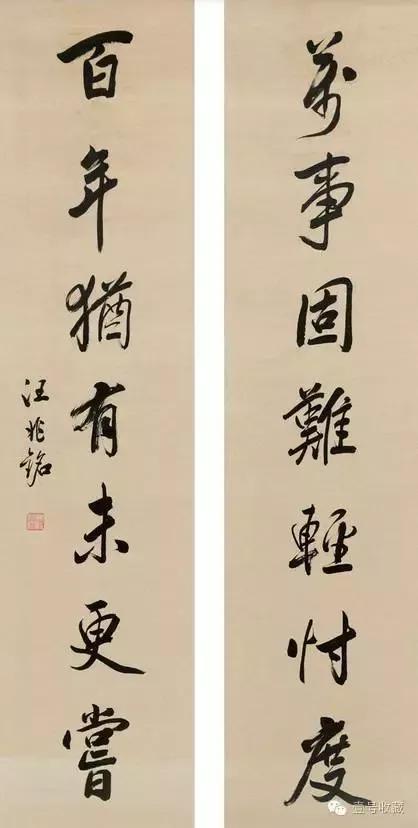 萬事固難輕忖度
百年猶有未更嘗
汪兆銘
壹号收藏